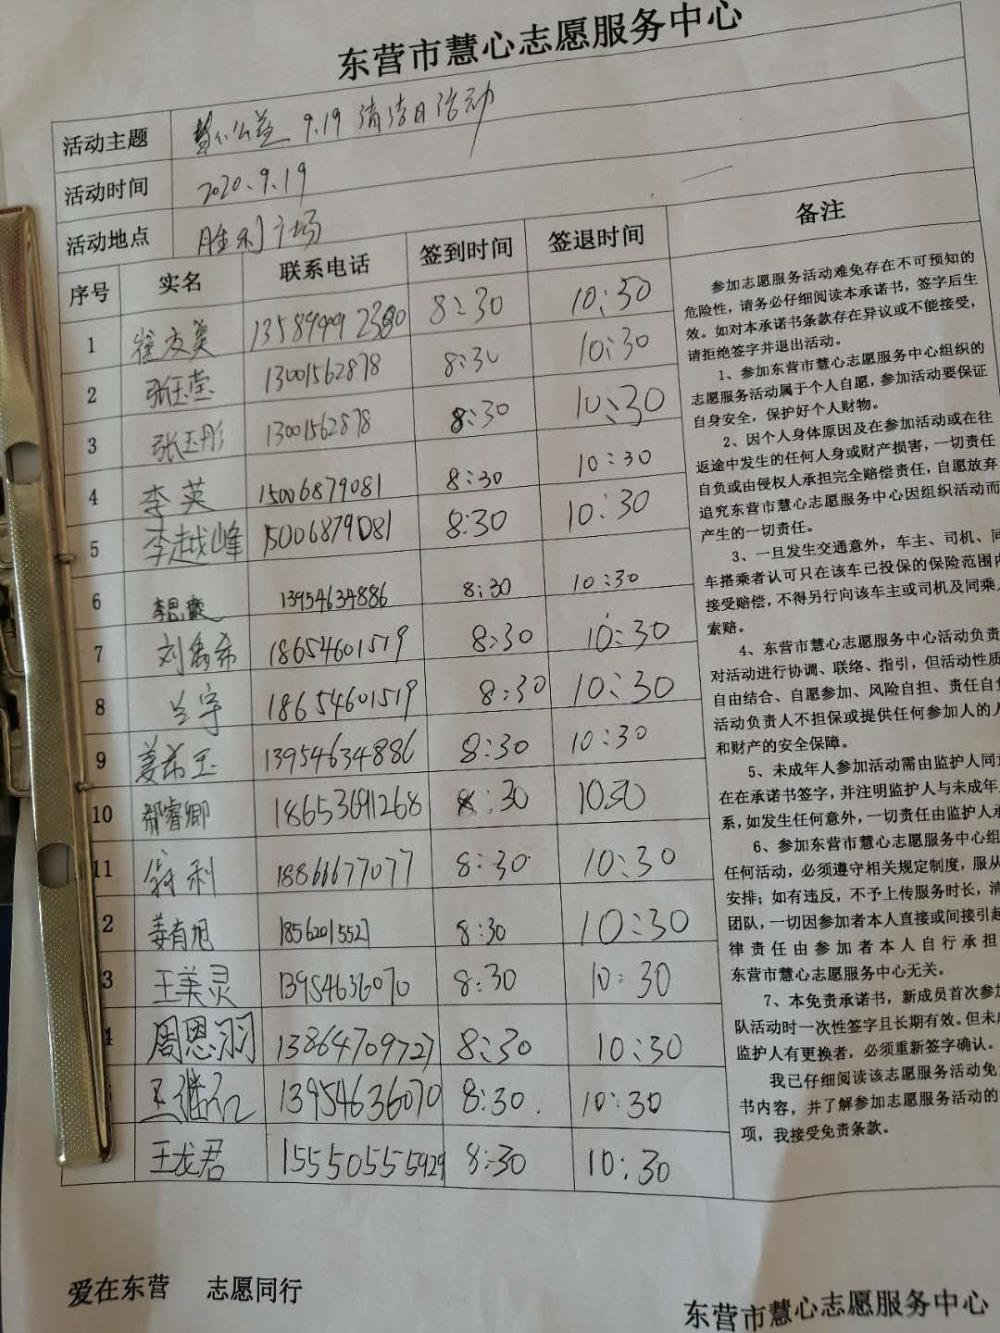 东营市慧心志愿服务中心
活动主题 慧心公益 9.19清洁日活动
活动时间 2020.9.19
活动地点 胜利广场
序号 实名 联系电话 签到时间 签退时间 备注
1 崔友英 8:30 10:30
2 张玉莹 13001562878 8:30 10:30
3 张玉彤 13001562878 8:30 10:30
4 李英 15006879081 8:30 10:30
5 李越峰 15006879081 8:30 10:30
6 13954634886 8:30 10:30
7 刘禹希 18654601519 8:30 10:30
8 兰宇 18654601519 8:30 10:30
9 姜希玉 13954634886 8:30 10:30
10 睿卿 18653691268 8:30 10:30
11 利 18866677077 8:30 10:30
2 姜有旭 8:30 10:30
3 王美灵 13954636070 8:30 10:30
4 周恩羽 13864709727 8:30 10:30
王继仁 13954636070 8:30. 10:30
王龙君 15550555929 8:30 10:30
参加志愿服务活动难免存在不可预知的
危险性,请务必仔细阅读本承诺书,签字后生
效。如对本承诺书条款存在异议或不能接受,
请拒绝签字并退出活动。
1、参加东营市慧心志愿服务中心组织的
志愿服务活动属于个人自愿,参加活动要保证
自身安全,保护好个人财物。
2、因个人身体原因及在参加活动或在往
返途中发生的任何人身或财产损害,一切责任
自负或由侵权人承担完全赔偿责任,自愿放弃
追究东营市慧心志愿服务中心因组织活动而
产生的一切责任。
3、一旦发生交通意外,车主、司机、同
车搭乘者认可只在该车已投保的保险范围内
接受赔偿,不得另行向该车主或司机及同乘人
索赔。
4、东营市慧心志愿服务中心活动负责
对活动进行协调、联络、指引,但活动性质
自由结合、自愿参加、风险自担、责任自负
活动负责人不担保或提供任何参加人的人
和财产的安全保障。
5、未成年人参加活动需由监护人同意
在在承诺书签字,并注明监护人与未成年
系,如发生任何意外,一切责任由监护人承
6、参加东营市慧心志愿服务中心组
任何活动,必须遵守相关规定制度,服从
安排;如有违反,不予上传服务时长,清
团队,一切因参加者本人直接或间接引起
律责任由参加者本人自行承担
东营市慧心志愿服务中心无关。
7、本免责承诺书,新成员首次参加
队活动时一次性签字且长期有效。但未成
监护人有更换者,必须重新签字确认。
我已仔细阅读该志愿服务活动免
书内容,并了解参加志愿服务活动的
项,我接受免责条款。
爱在东营 志愿同行
东营市慧心志愿服务中心